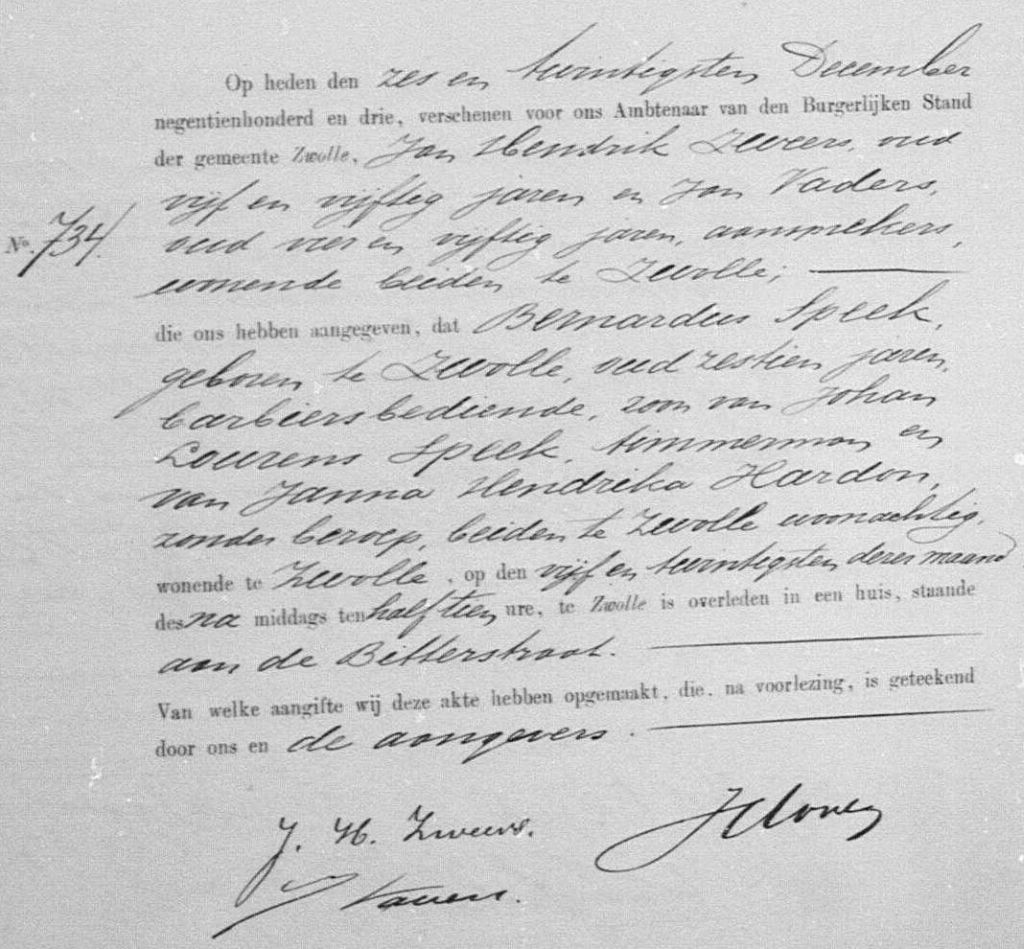 Op heden den zes en twintigsten December
negentienhonderd en drie, verschenen voor ons Ambtenaar van den Burgerlijken Stand
der gemeente Zwolle, Jan Hendrik Zweers, oud
vijf en vijftig jaren en Jan Vaders,
No. 734. oud vier en vijftig jaren, aansprekers,
wonende beiden te Zwolle;
die ons hebben aangegeven, dat Bernardus Speek,
geboren te Zwolle, oud zestien jaren,
barbiersbediende, zoon van Johan
Lourens Speek, timmerman en
van Janna Hendrika Hardon,
zonder beroep, beiden te Zwolle woonachtig,
wonende te Zwolle, op den vijf en twintigsten dezer maand
des na middags ten half tien ure, te Zwolle is overleden in een huis, staande
aan de Bitterstraat.
Van welke aangifte wij deze akte hebben opgemaakt, die, na voorlezing, is geteekend
door ons en de aangevers.
J. H. Zweers.